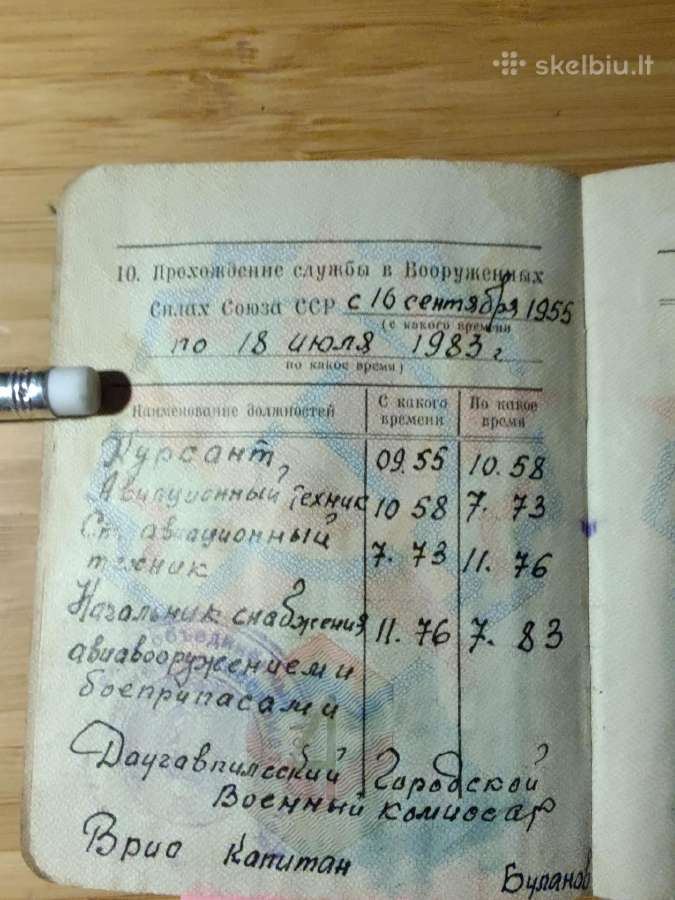 skelbiu.lt
10. Прохождение службы в Вооруженных
Силах Союза ССР с 16 сентября 1955
(с какого времени
по 18 июля 1983 г
по какое время)
Наименование должностей С какого времени По какое время
Курсант 09.55 10.58
Авиационный техник 10 58 7. 73
Ст. авиационный
техник 7. 73 11. 76
Начальник снабжения 11. 76 7. 83
авиавооружением и
боеприпасами
Даугавпилсский Городской
Военный комиссар
Врио капитан Буланов